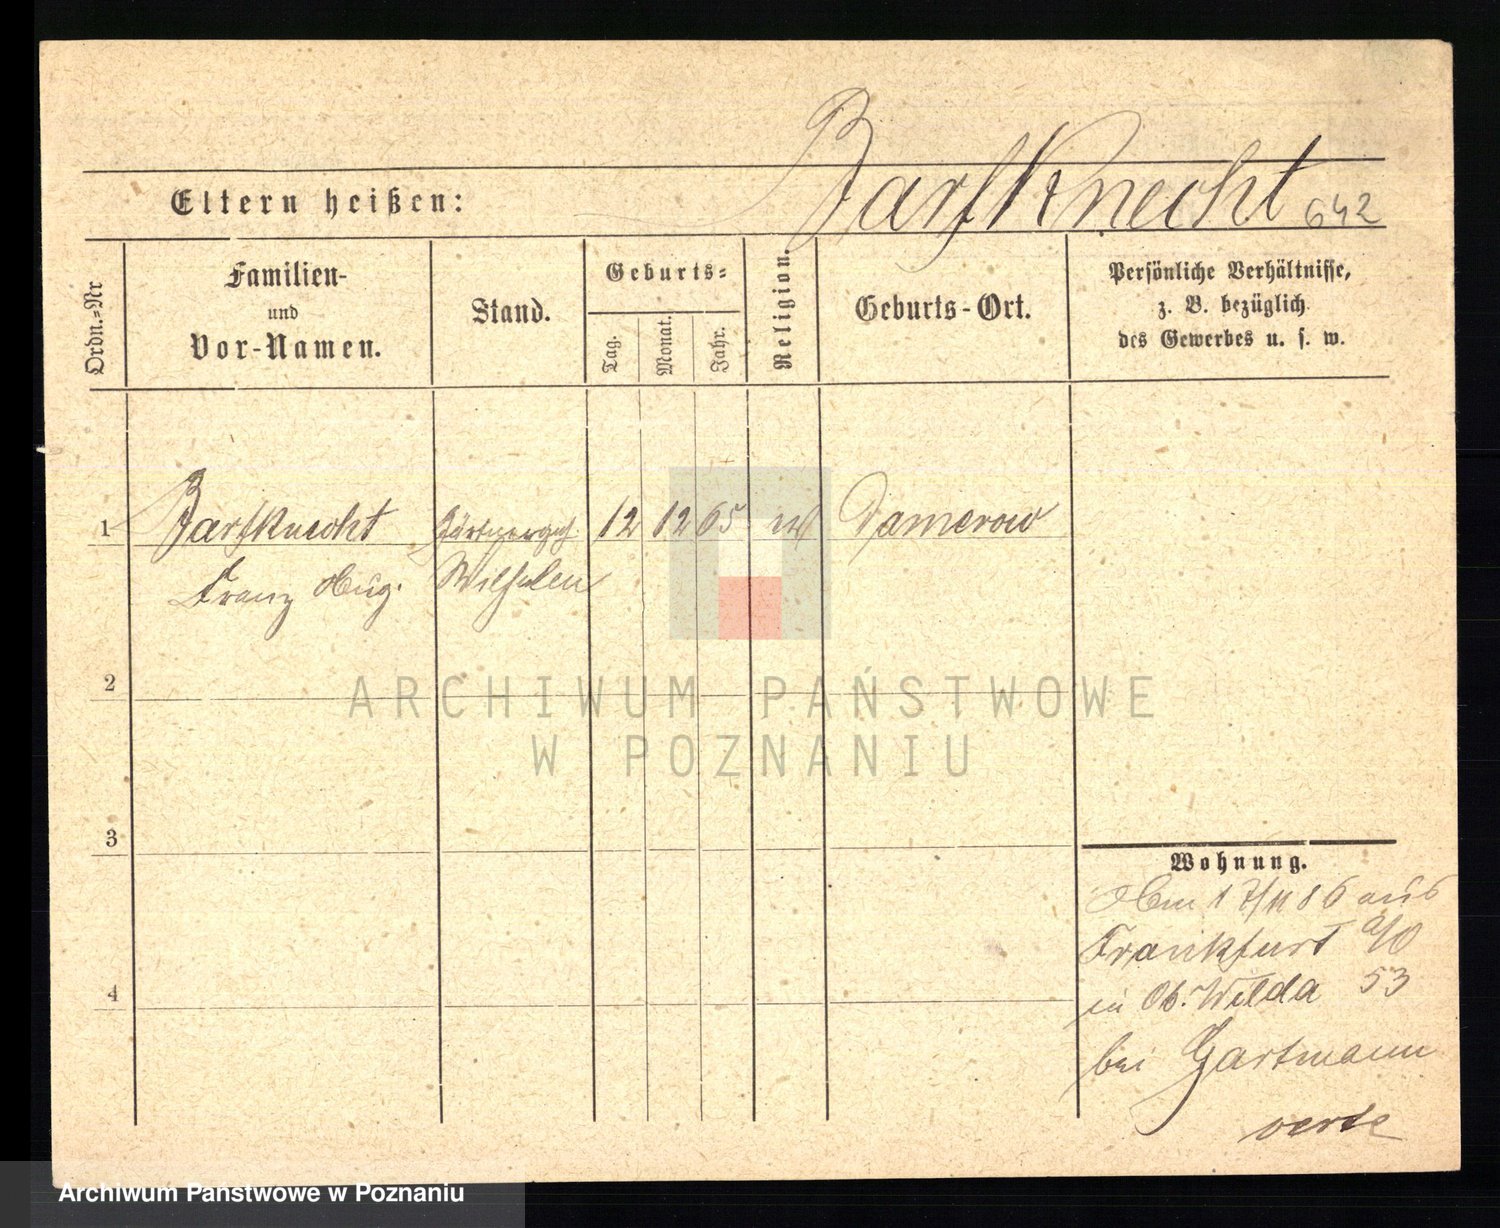 Barfknecht 642
Eltern heißen:
Ordn.=Nr
Familien-
und
Vor-Namen.
Stand.
Geburts=
Tag.
Monat.
Jahr.
Religion.
Geburts-Ort.
Persönliche Verhältnisse,
z. B. bezüglich
des Gewerbes u. s. w.
1 Barfknecht Gärtnergeh. 12 12 65 ev Damerow
Franz Aug. Wilhelm
2
3
4
Wohnung.
Am 17/11 86 aus
Frankfurt a/O
in Ob. Wilda 53
bei Gartmann
verte
ARCHIWUM PAŃSTWOWE
W POZNANIU
Archiwum Państwowe w Poznaniu